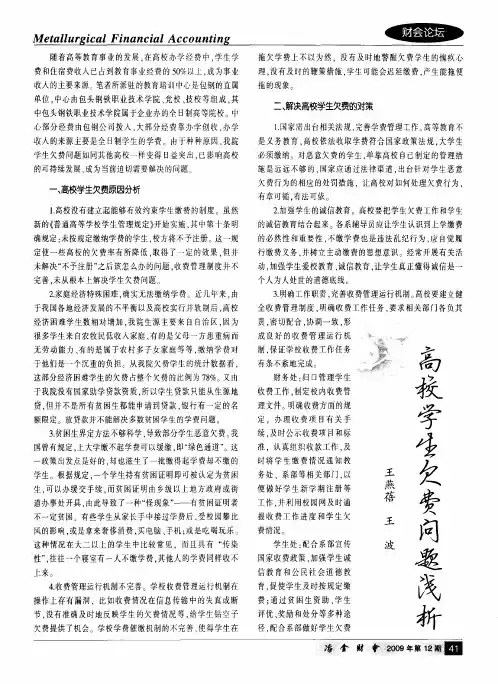 Metallurgical Financial Accounting
财会论坛
随着高等教育事业的发展,在高校办学经费中,学生学
费和住宿费收入已占到教育事业经费的50%以上,成为事业
收入的主要来源。笔者所派驻的教育培训中心是包钢的直属
单位,中心由包头钢铁职业技术学院、党校、技校等组成,其
中包头钢铁职业技术学院属于企业办的全日制高等院校。中
心部分经费由包钢公司拨入,大部分经费靠办学创收,办学
收入的来源主要是全日制学生的学费。由于种种原因,我院
学生欠费问题如同其他高校一样变得日益突出,已影响高校
的可持续发展,成为当前迫切需要解决的问题。
一、高校学生欠费原因分析
1.高校没有建立起能够有效约束学生缴费的制度。虽然
新的《普通高等学校学生管理规定》开始实施,其中第十条明
确规定:未按规定缴纳学费的学生,校方将不予注册。这一规
定使一些高校的欠费率有所降低,取得了一定的效果,但并
未解决“不予注册”之后该怎么办的问题,收费管理制度并不
完善,未从根本上解决学生欠费问题。
2.家庭经济特殊困难,确实无法缴纳学费。近几年来,由
于我国各地经济发展的不平衡以及高校实行并轨制后,高校
经济困难学生数相对增加,我院生源主要来自自治区,因为
很多学生来自农牧民低收入家庭,有的是父母一方患重病而
无劳动能力、有的是属于农村多子女家庭等等,缴纳学费对
于他们是一个沉重的负担。从我院欠费学生的统计数据看,
这部分经济困难学生的欠费占整个欠费的比例为78%。又由
于我院没有国家助学贷款资质,所以学生贷款只能从生源地
贷,但并不是所有贫困生都能申请到贷款,银行有一定的名
额限定。故贷款并不能解决多数贫困学生的学费问题。
3.贫困生界定方法不够科学,导致部分学生恶意欠费。我
国曾有规定,上大学缴不起学费可以缓缴,即“绿色通道”。这
一政策出发点是好的,却也滋生了一批缴得起学费却不缴的
学生。根据规定,一个学生持有贫困证明即可被认定为贫困
生,可以办缓交手续,而贫困证明由乡镇以上地方政府或街
道办事处开具,由此导致了一种“怪现象”——有贫困证明者
不一定贫困。有些学生从家长手中接过学费后,受校园攀比
风的影响,或是拿来奢侈消费,买电脑、手机;或是吃喝玩乐。
这种情况在大二以上的学生中比较常见,而且具有“传染
性”,往往一个寝室有一人不缴学费,其他人的学费同样收不
上来。
4.收费管理运行机制不完善。学校收费管理运行机制在
操作上存有漏洞,比如收费情况在信息传输中的失真或断
节,没有准确及时地反映学生的欠费情况等,给学生钻空子
欠费提供了机会。学校学费催缴机制的不完善,使得学生在
拖欠学费上不以为然。没有及时地警醒欠费学生的愧疚心
理,没有及时的鞭策措施,学生可能会迟延缴费,产生能拖便
拖的现象。
二、解决高校学生欠费的对策
1.国家需出台相关法规,完善学费管理工作。高等教育不
是义务教育,高校依法收取学费符合国家政策法规,大学生
必须缴纳。对恶意欠费的学生,单靠高校自己制定的管理措
施是远远不够的,国家应通过法律渠道,出台针对学生恶意
欠费行为的相应的处罚措施,让高校对如何处理欠费行为,
有章可循,有法可依。
2.加强学生的诚信教育。高校要把学生欠费工作和学生
的诚信教育结合起来。各系辅导员应让学生认识到上学缴费
的必然性和重要性,不缴学费也是违法乱纪行为,应自觉履
行缴费义务,并树立主动缴费的思想意识。经常开展有关活
动,加强学生爱校教育,诚信教育,让学生真正懂得诚信是一
个人为人处世的道德底线。
3.明确工作职责,完善收费管理运行机制。高校要建立健
全收费管理制度,明确收费工作任务,要求相关部门各负其
责,密切配合,协调一致,形
成良好的收费管理运行机
制,保证学校收费工作任务
有条不紊地完成。
财务处:归口管理学生
收费工作,制定校内收费管
理文件。明确收费方面的规
定,办理收费项目有关手
续,及时公示收费项目和标
准,认真组织收款工作,及
时将学生缴费情况通知教
务处、系部等相关部门,以
便做好学生新学期注册等
工作,并利用校园网及时通
报收费工作进度和学生欠
费情况。
学生处:配合系部宣传
国家收费政策,加强学生诚
信教育和公民社会道德教
育,提使学生及时按规定缴
费;通过贫困生资助,学生
评优、奖励和处分等多种途
径,配合系部做好学生欠费
高校学生欠费问题浅析
王燕蓓 王波
冶金财会 2009年第12期 41